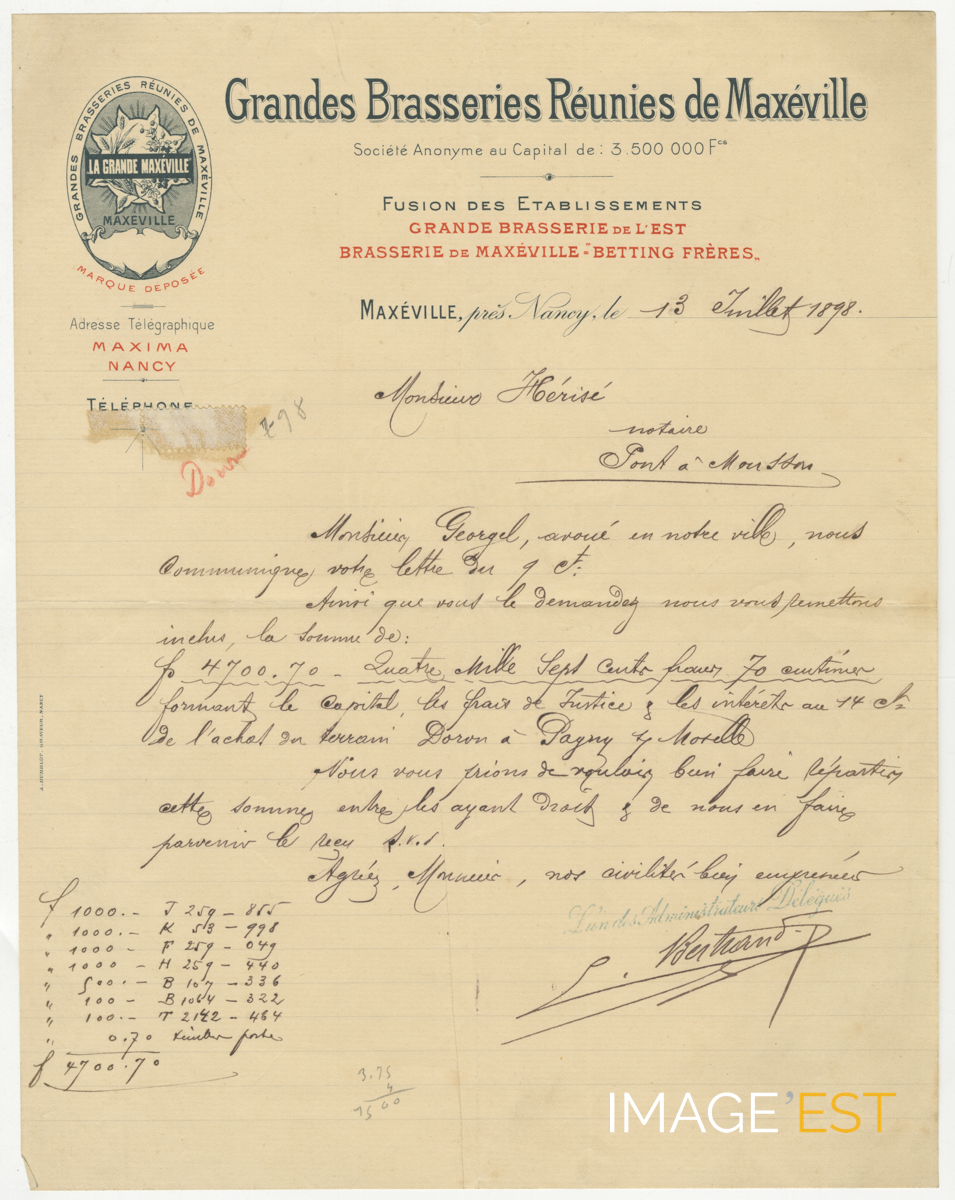 GRANDES BRASSERIES RÉUNIES DE MAXÉVILLE
LA GRANDE MAXÉVILLE
MAXEVILLE
MARQUE DEPOSÉE
Grandes Brasseries Réunies de Maxéville
Société Anonyme au Capital de : 3.500 000 Fcs
FUSION DES ETABLISSEMENTS
GRANDE BRASSERIE DE L'EST
BRASSERIE DE MAXÉVILLE "BETTING FRÈRES"
MAXÉVILLE, près Nancy, le 13 Juillet 1898.
Adresse Télégraphique
MAXIMA
NANCY
TÉLÉPHONE
Doron
Monsieur Hérisé
notaire
Pont à Mousson
Monsieur Georgel, avoué en notre ville, nous
communique votre lettre du 9 Ct:
Ainsi que vous le demandez nous vous remettons
inclus, la somme de:
f 4700.70 - Quatre Mille Sept Cents francs 70 centimes
formant le capital, les frais de Justice & les intérêts au 14 Ct
de l'achat du terrain Doron à Pagny s/ Moselle
Nous vous prions de vouloir bien faire répartir
cette somme entre les ayant droit & de nous en faire
parvenir le reçu s.v.p.
Agréez, Monsieur, nos civilités bien empressées
L'un des Administrateurs Délégués
Bertrand
f 1000.- J 259 - 855
" 1000.- K 53 - 998
" 1000 - F 259 - 049
" 1000 - H 259 - 440
" 500.- B 107 - 336
" 100 - B 1064 - 322
" 100.- T 2142 - 464
" 0.70 timbre poste
f 4700.70
3.75
4
15 00
IMAGE'EST